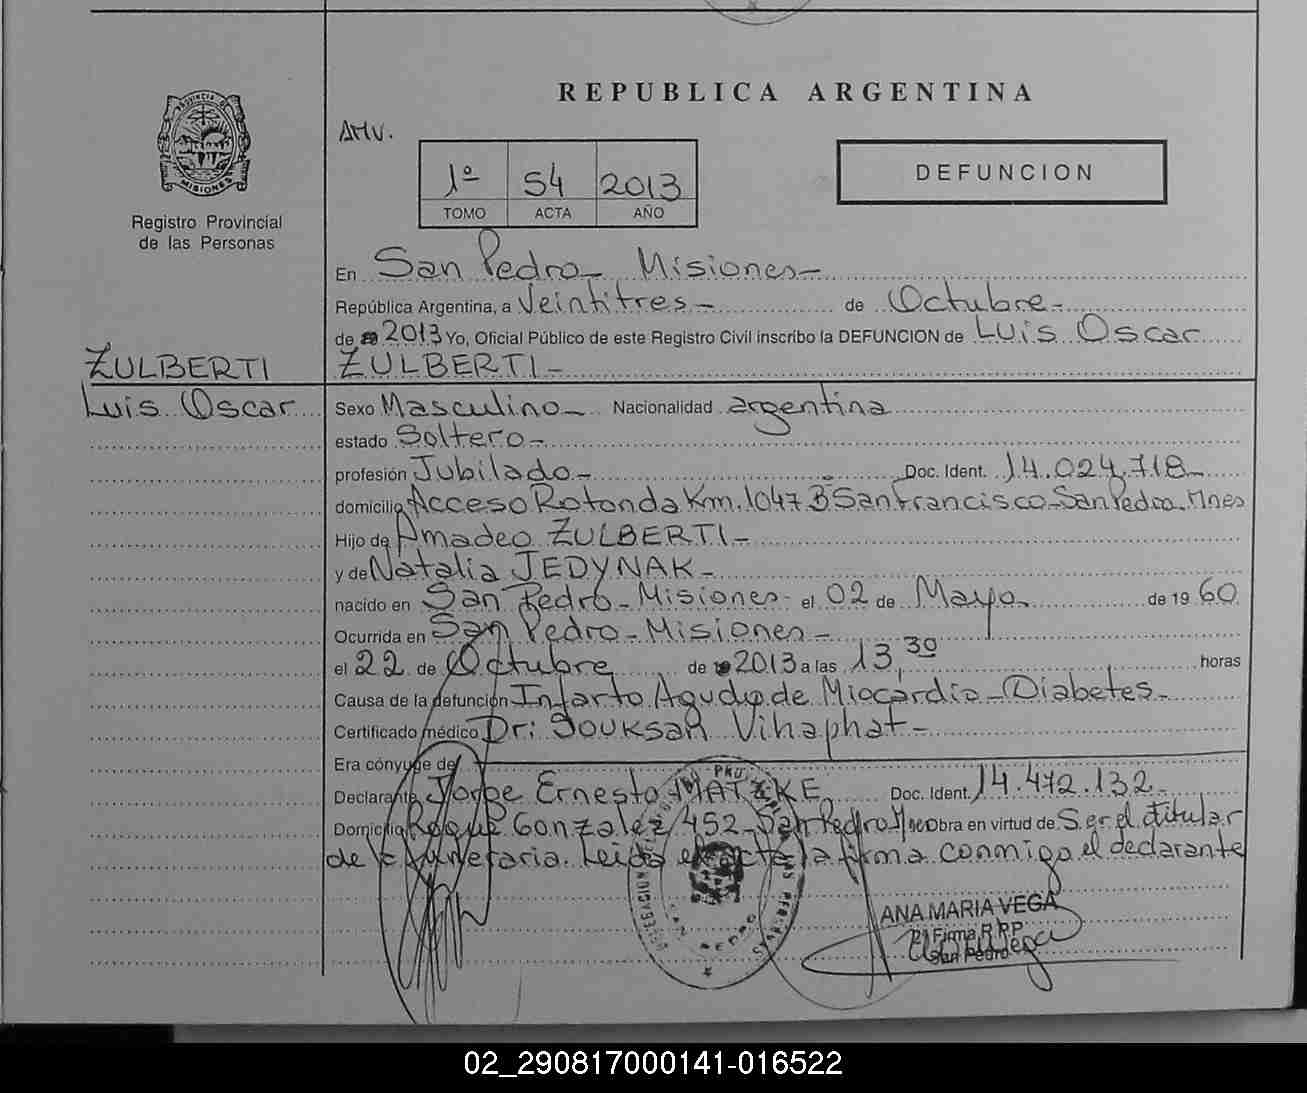 REPUBLICA ARGENTINA
PROVINCIA DE
MISIONES
Registro Provincial
de las Personas
AMV.
1º 54 2013
TOMO ACTA AÑO
DEFUNCION
En San Pedro - Misiones -
República Argentina, a Veintitres - de Octubre -
de 2013 Yo, Oficial Público de este Registro Civil inscribo la DEFUNCION de Luis Oscar
ZULBERTI -
ZULBERTI
Luis Oscar
Sexo Masculino - Nacionalidad argentina
estado Soltero -
profesión Jubilado - Doc. Ident. 14.024.718 -
domicilio Acceso Rotonda Km. 1047 Bº San Francisco - San Pedro - Mnes
Hijo de Amadeo ZULBERTI -
y de Natalia JEDYNAK -
nacido en San Pedro - Misiones - el 02 de Mayo - de 1960
Ocurrida en San Pedro - Misiones -
el 22 de Octubre de 2013 a las 13,30 horas
Causa de la defunción Infarto Agudo de Miocardio - Diabetes -
Certificado médico Dr: Souksan Vihaphat -
Era cónyuge de
Declarante Jorge Ernesto MATZKE Doc. Ident. 14.472.132 -
Domicilio Roque Gonzalez 452 - San Pedro Mnes Obra en virtud de Ser el titular
de la funeraria. Leida el acta la firma conmigo el declarante
DELEGACION SAN PEDRO
ANA MARIA VEGA
2ª Firma R.P.P.
San Pedro
02_290817000141-016522